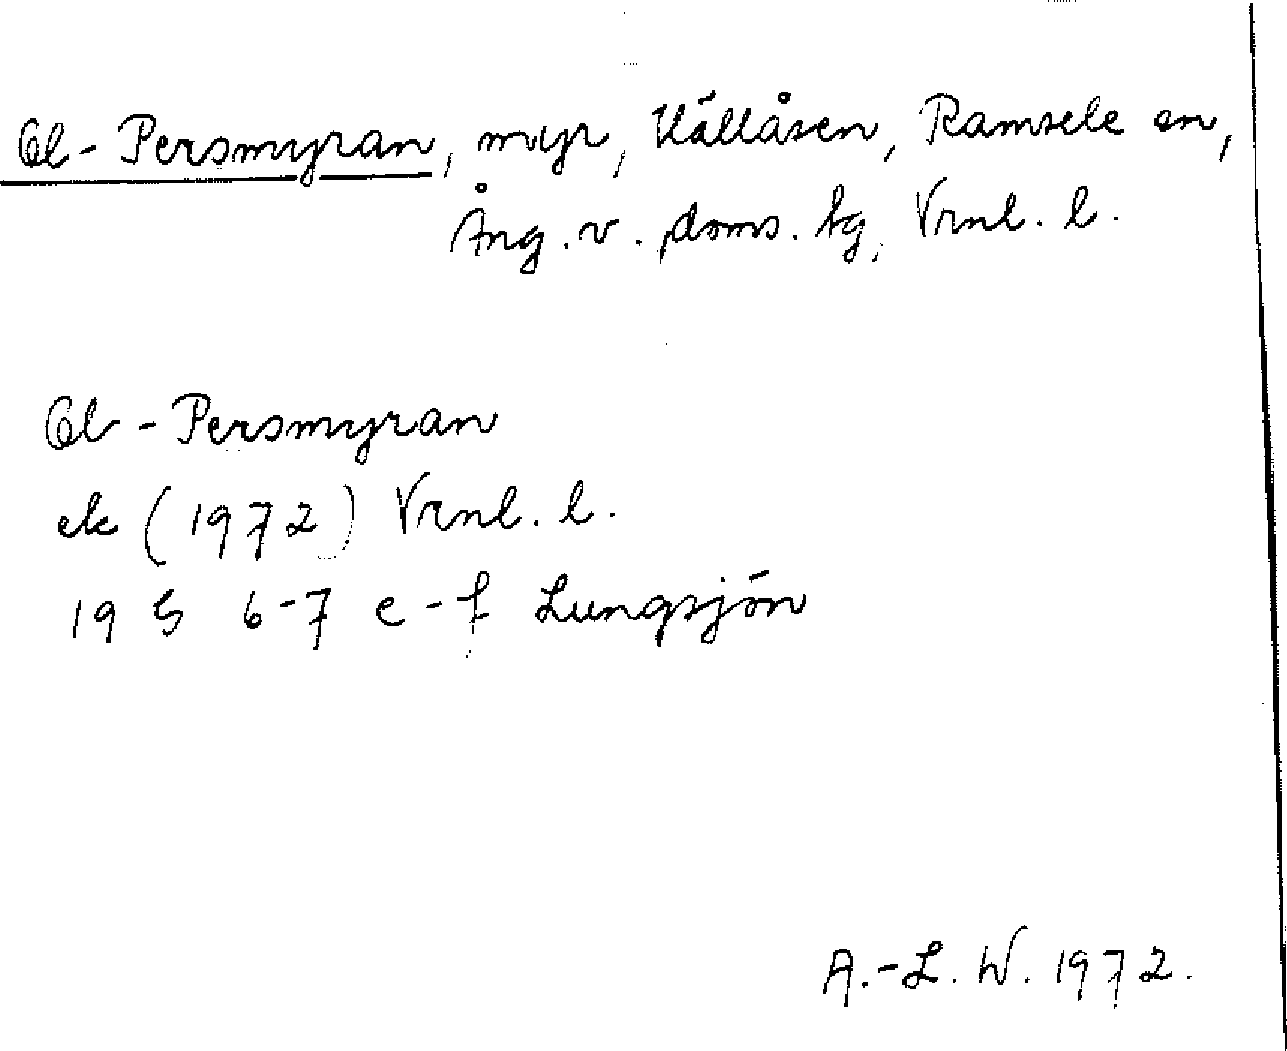 Ol-Persmyran, myr, Källåsen, Ramsele sn,
Ång. v. doms. tg, Vrnl. l.
Ol-Persmyran
ek (1972) Vrnl. l.
19 G 6-7 e-f Lungsjön
A.-L. W. 1972.